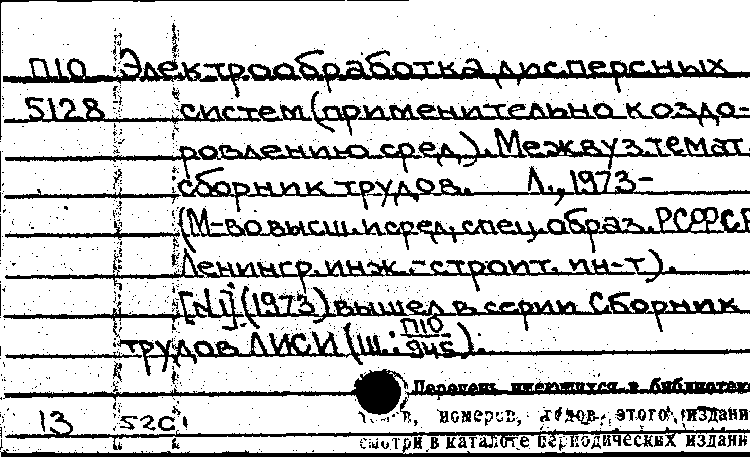 П10 Электрообработка дисперсных
5128 систем (применительно к оздо-
ровлению сред). Межвуз. темат.
сборник трудов. Л., 1973-
(М-во высш. и сред. спец. образ. РСФСР
Ленингр. инж.-строит. ин-т).
[№1]: (1973) вышел в серии Сборник
трудов ЛИСИ (ш.: П10/945).
Перечень имеющихся в библиотеке
номеров, годов этого издани
13 520
смотри в каталоге периодических издани